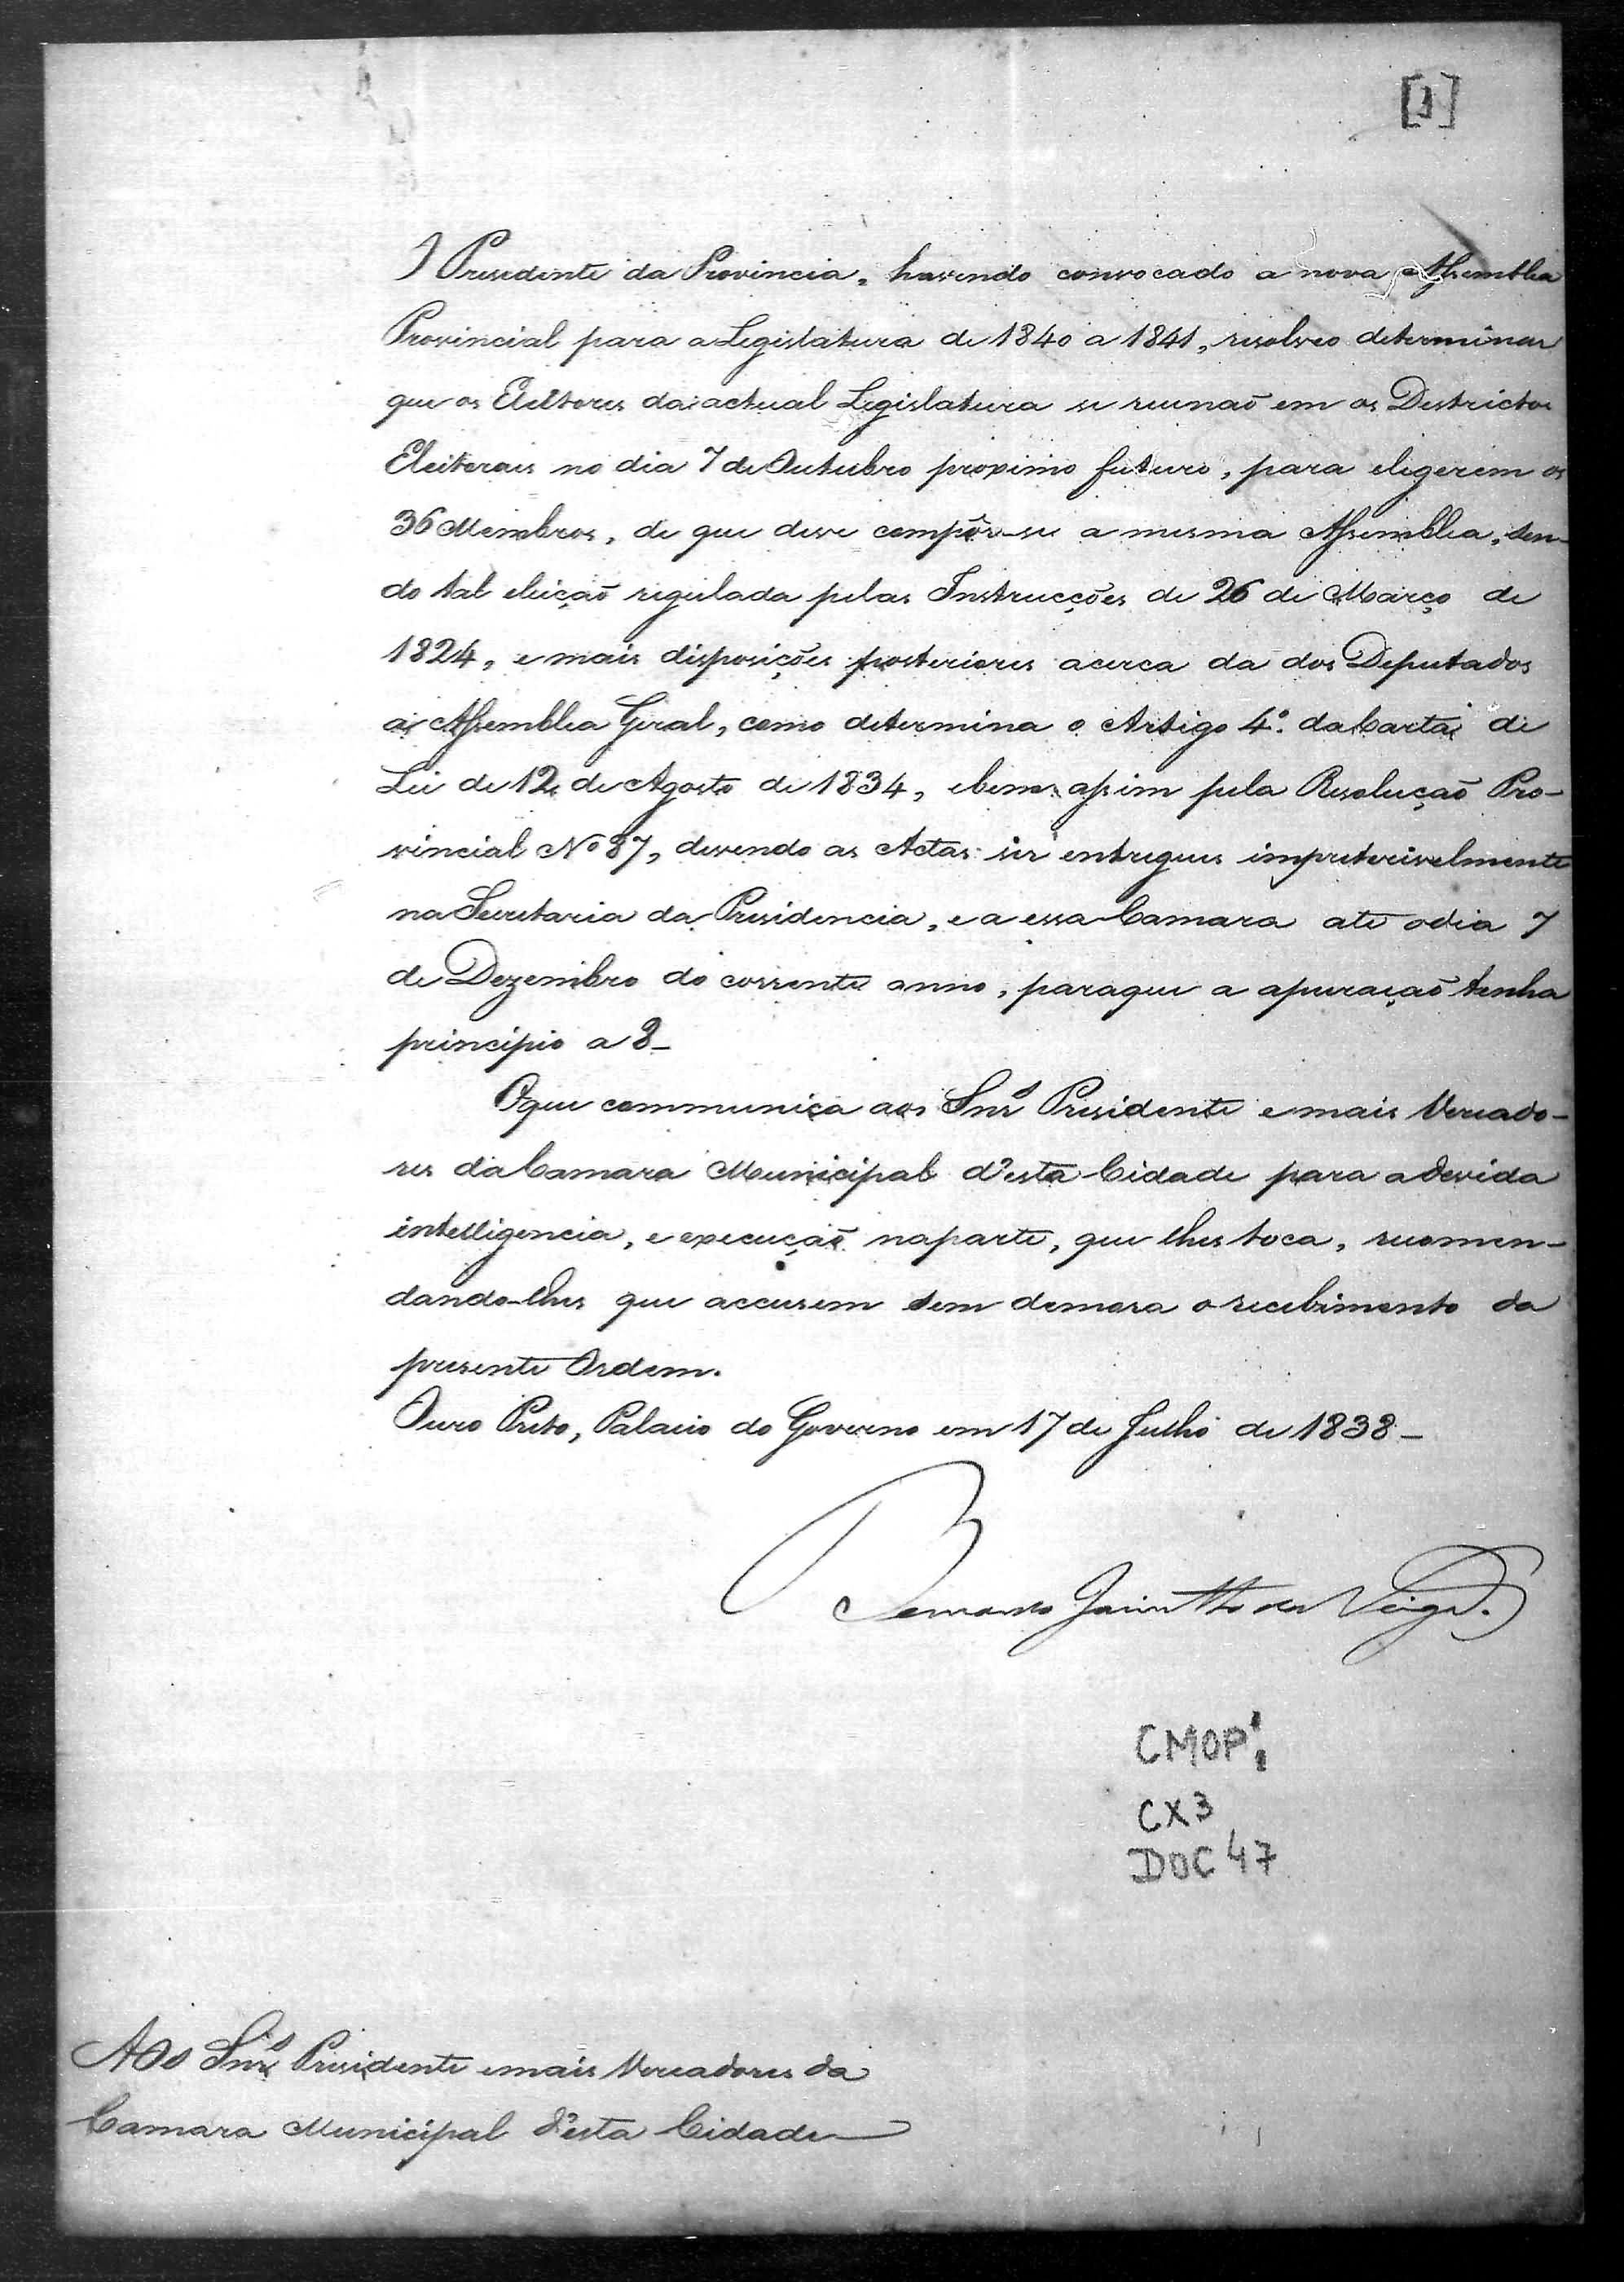 [1]
O Presidente da Provincia, havendo convocado a nova Assemblea
Provincial para a Legislatura de 1840 a 1841, resolveo determinar
que os Eleitores da actual Legislatura se reunaõ em os Destrictos
Eleitoraes no dia 7 de Outubro proximo futuro, para elegerem os
36 Membros, de que deve compôr-se a mesma Assemblea, sen-
do tal eleiçaõ regulada pelas Instrucções de 26 de Março de
1824, e mais disposições posteriores acerca da dos Deputados
á Assemblea Geral, como determina o Artigo 4º. da Carta de
Lei de 12 de Agosto de 1834, e bem assim pela Resoluçaõ Pro-
vincial Nº 87, devendo as Actas ser entregues impreterivelmente
na Secretaria da Presidencia, e a essa Camara até o dia 7
de Dezembro do corrente anno, para que a apuraçaõ tenha
principio a 8_
O que communica aos Snrs Presidente e mais Vereado-
res da Camara Municipal d'esta Cidade para a devida
intelligencia, e execuçaõ na parte, que lhes toca, recomen-
dando-lhes que accusem sem demora o recebimento da
presente Ordem.
Ouro Preto, Palacio do Governo em 17 de Julho de 1838_
Bernardo Jacintho da Veiga.
CMOP:
CX3
DOC 47
Aos Snrs Presidente e mais Vereadores da
Camara Municipal d'esta Cidade